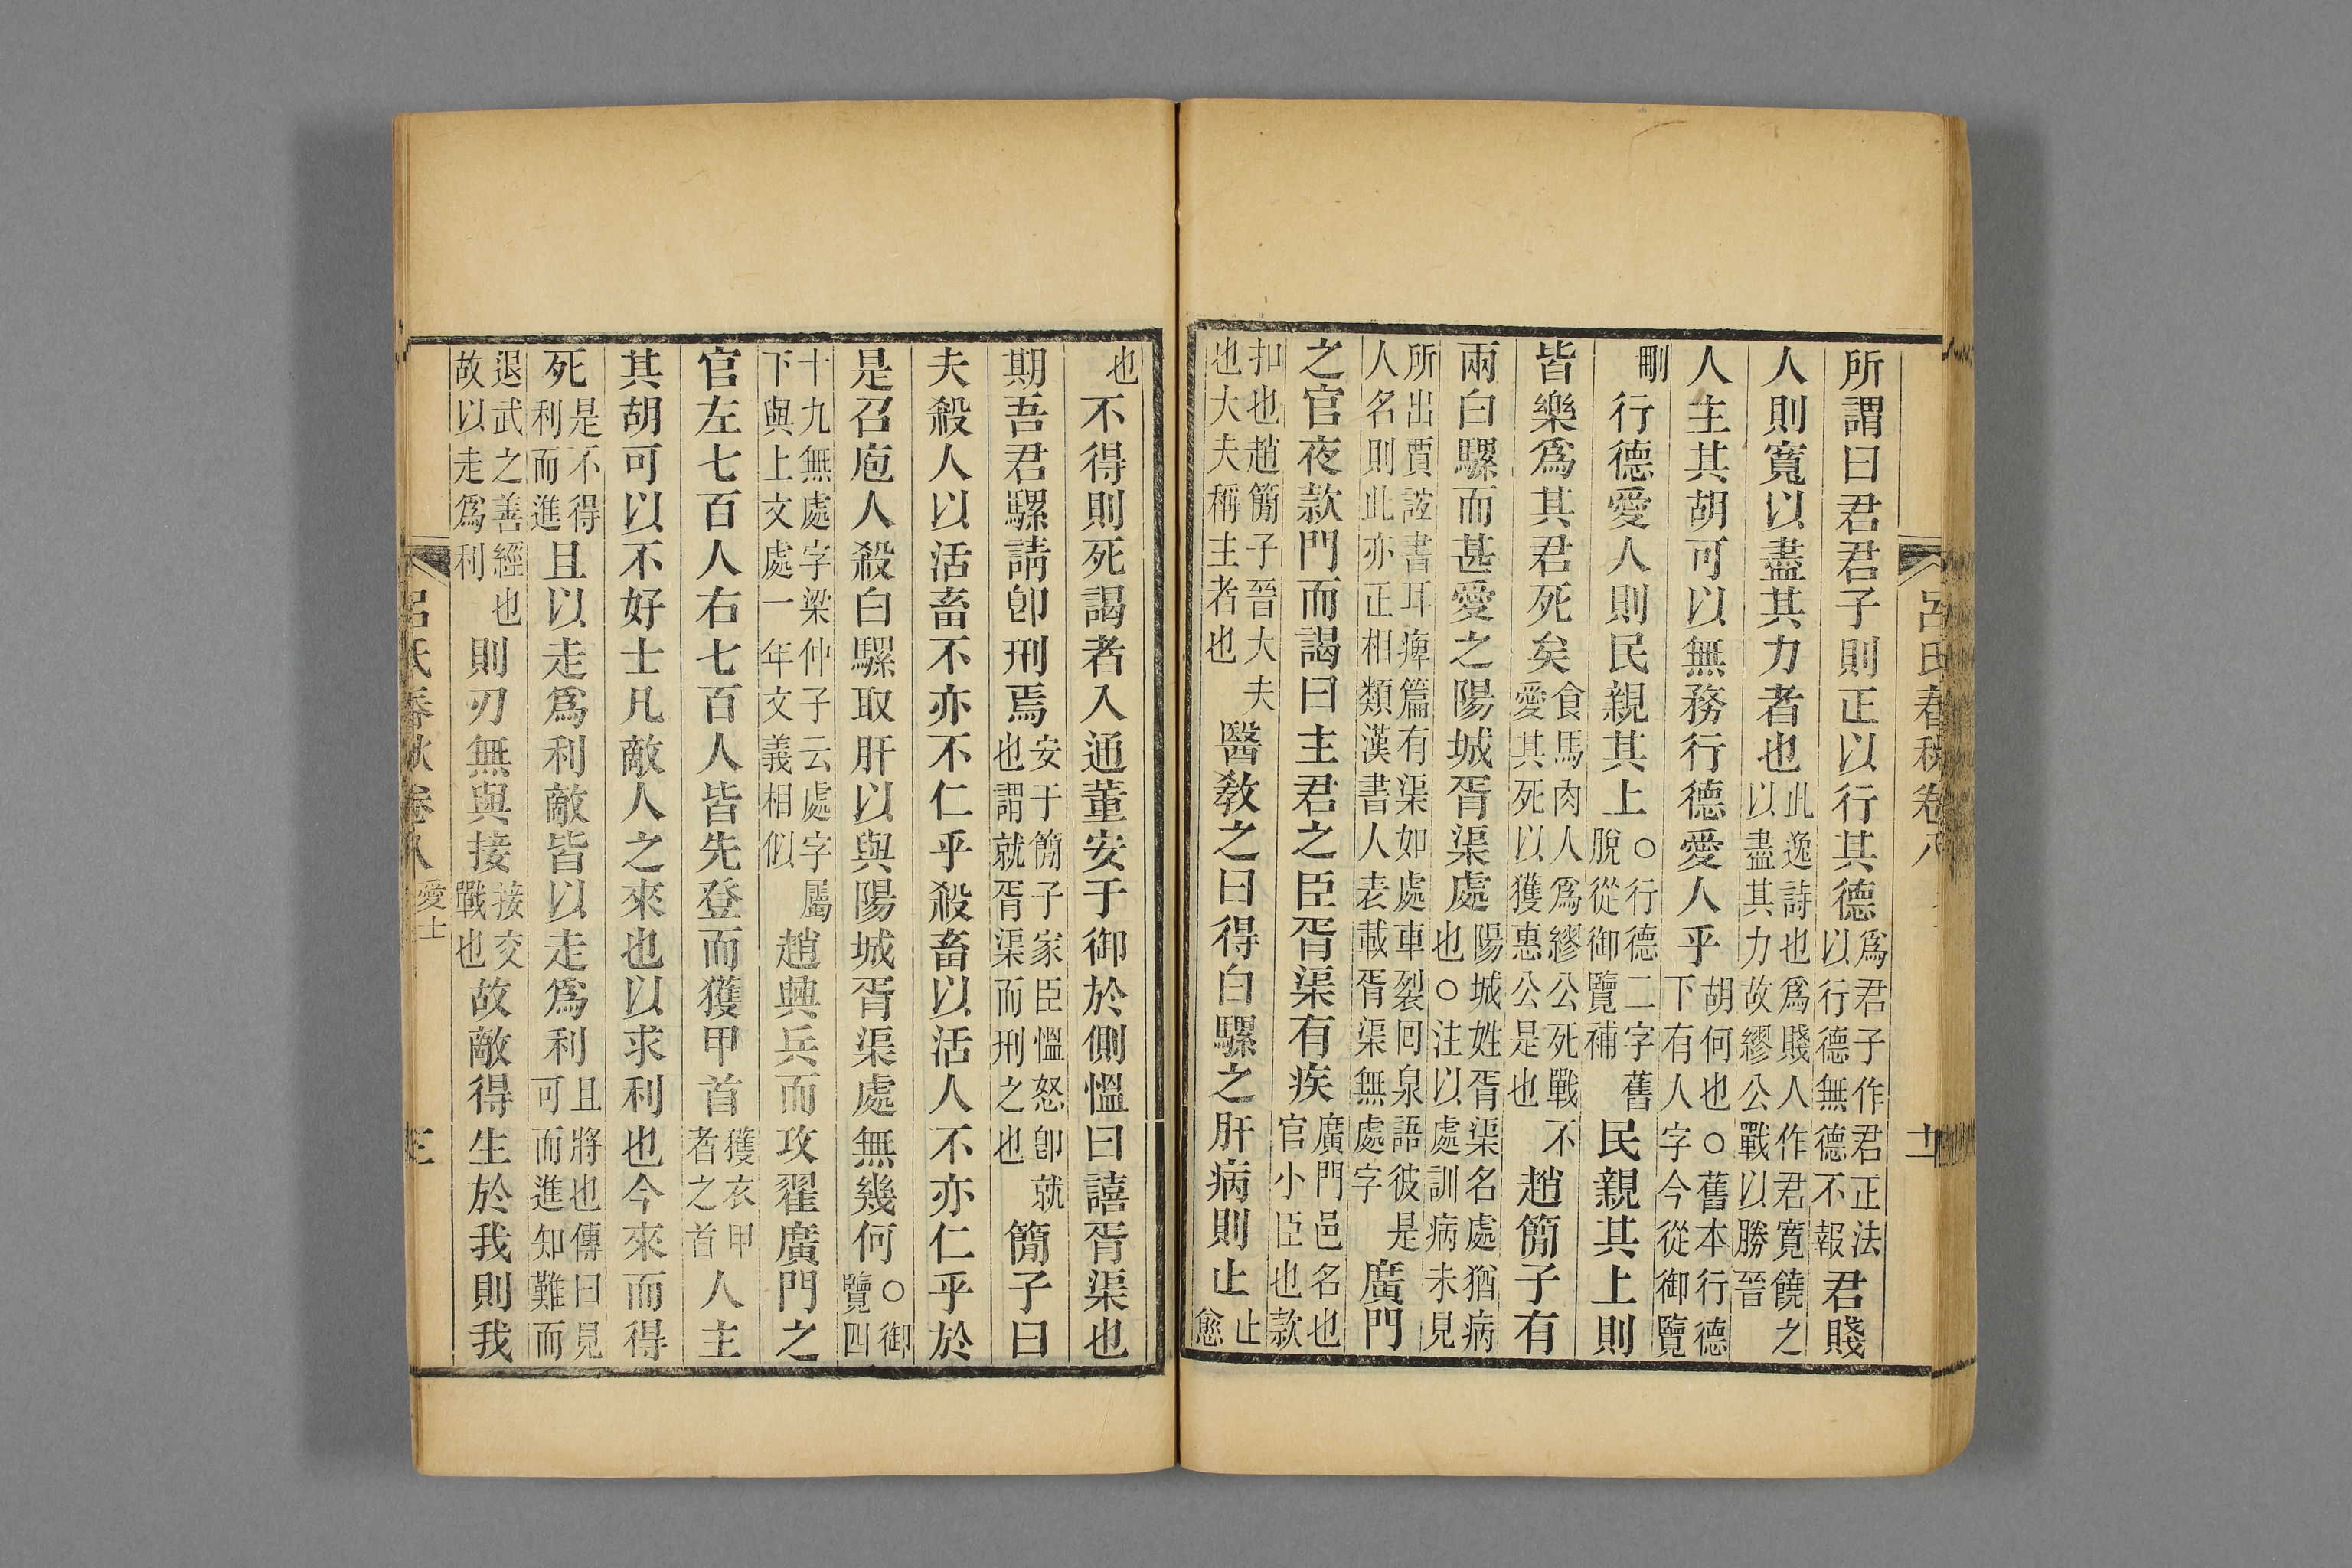 呂氏春秋卷八
所謂曰君君子則正以行其德爲君子作君正法以行德無德不報君賤
人則寬以盡其力者也此逸詩也爲賤人作君寬饒之以盡其力故繆公戰以勝晉
人主其胡可以無務行德愛人乎胡何也○舊本行德下有人字今從御覽
刪行德愛人則民親其上○行德二字舊脫從御覽補民親其上則
皆樂爲其君死矣食馬肉人爲繆公死戰不愛其死以獲惠公是也趙簡子有
兩白騾而甚愛之陽城胥渠處陽城姓胥渠名處猶病也○注以處訓病未見
所出賈誼書耳痺篇有渠如處車裂回泉語彼是人名則此亦正相類漢書人表載胥渠無處字廣門
之官夜款門而謁曰主君之臣胥渠有疾廣門邑名也官小臣也款
扣也趙簡子晉大夫也大夫稱主者也醫教之曰得白騾之肝病則止止愈
也不得則死謁者入通董安于御於側慍曰譆胥渠也
期吾君騾請卽刑焉安于簡子家臣慍怒卽就也謂就胥渠而刑之也簡子曰
夫殺人以活畜不亦不仁乎殺畜以活人不亦仁乎於
是召庖人殺白騾取肝以與陽城胥渠處無幾何○御覽四
十九無處字梁仲子云處字屬下與上文處一年文義相似趙興兵而攻翟廣門之
官左七百人右七百人皆先登而獲甲首獲衣甲者之首人主
其胡可以不好士凡敵人之來也以求利也今來而得
死是不得利而進且以走爲利敵皆以走爲利且將也傳曰見可而進知難而
退武之善經也故以走爲利則刃無與接接交戰也故敵得生於我則我
呂氏春秋卷八 愛士 三